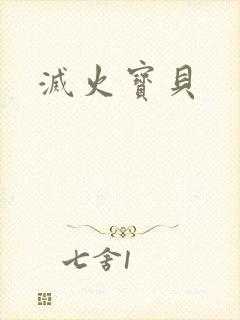 滅火寶貝
七舍1